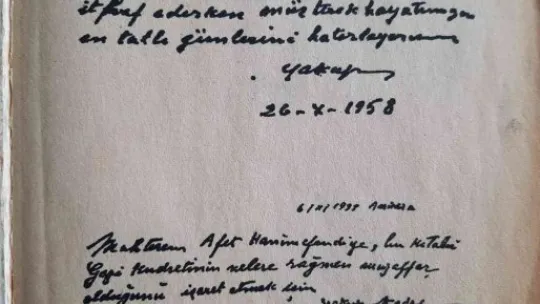 ithaf ederken müşterek hayatımızın
en tatlı günlerini hatırlıyorum
Yakup
26-X-1958
6/XI/1935 Ankara
Muhterem Afet Hanımefendiye, bu kitabı
Gazi Kudretinin nelere rağmen muzaffer
olduğunu işaret etmek için